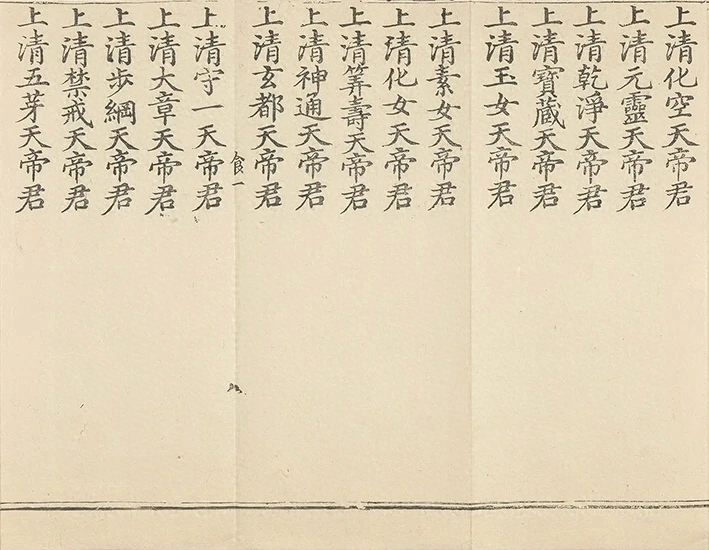 上清化空天帝君
上清元靈天帝君
上清乾淨天帝君
上清寶蔵天帝君
上清玉女天帝君
上清素女天帝君
上清化女天帝君
上清筭壽天帝君
上清神通天帝君
上清玄都天帝君
食一
上清守一天帝君
上清大章天帝君
上清步綱天帝君
上清禁戒天帝君
上清五芽天帝君